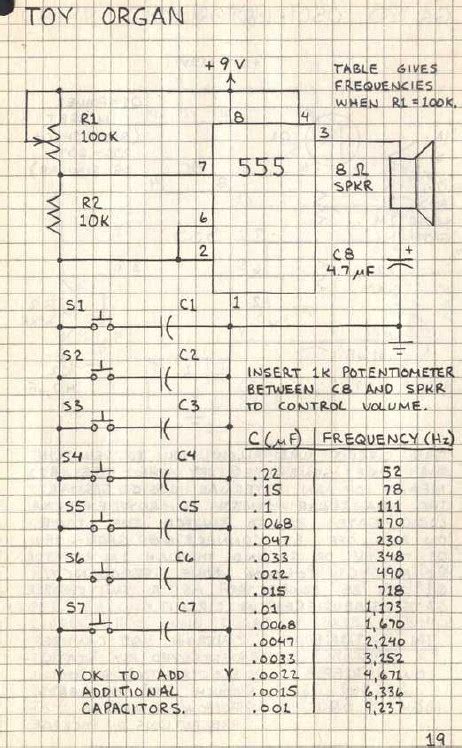 TOY ORGAN
+9V
TABLE GIVES
FREQUENCIES
WHEN R1 = 100K.
R1
100K
8
4
3
7
555
8 Ω
SPKR
R2
10K
6
2
C8
4.7 µF
+
1
S1
C1
S2
C2
S3
C3
S4
C4
S5
C5
S6
C6
S7
C7
INSERT 1K POTENTIOMETER
BETWEEN C8 AND SPKR
TO CONTROL VOLUME.
C (µF) FREQUENCY (Hz)
.22 52
.15 78
.1 111
.068 170
.047 230
.033 348
.022 490
.015 718
.01 1,173
.0068 1,670
.0047 2,240
.0033 3,252
.0022 4,671
.0015 6,336
.001 9,237
OK TO ADD
ADDITIONAL
CAPACITORS.
19